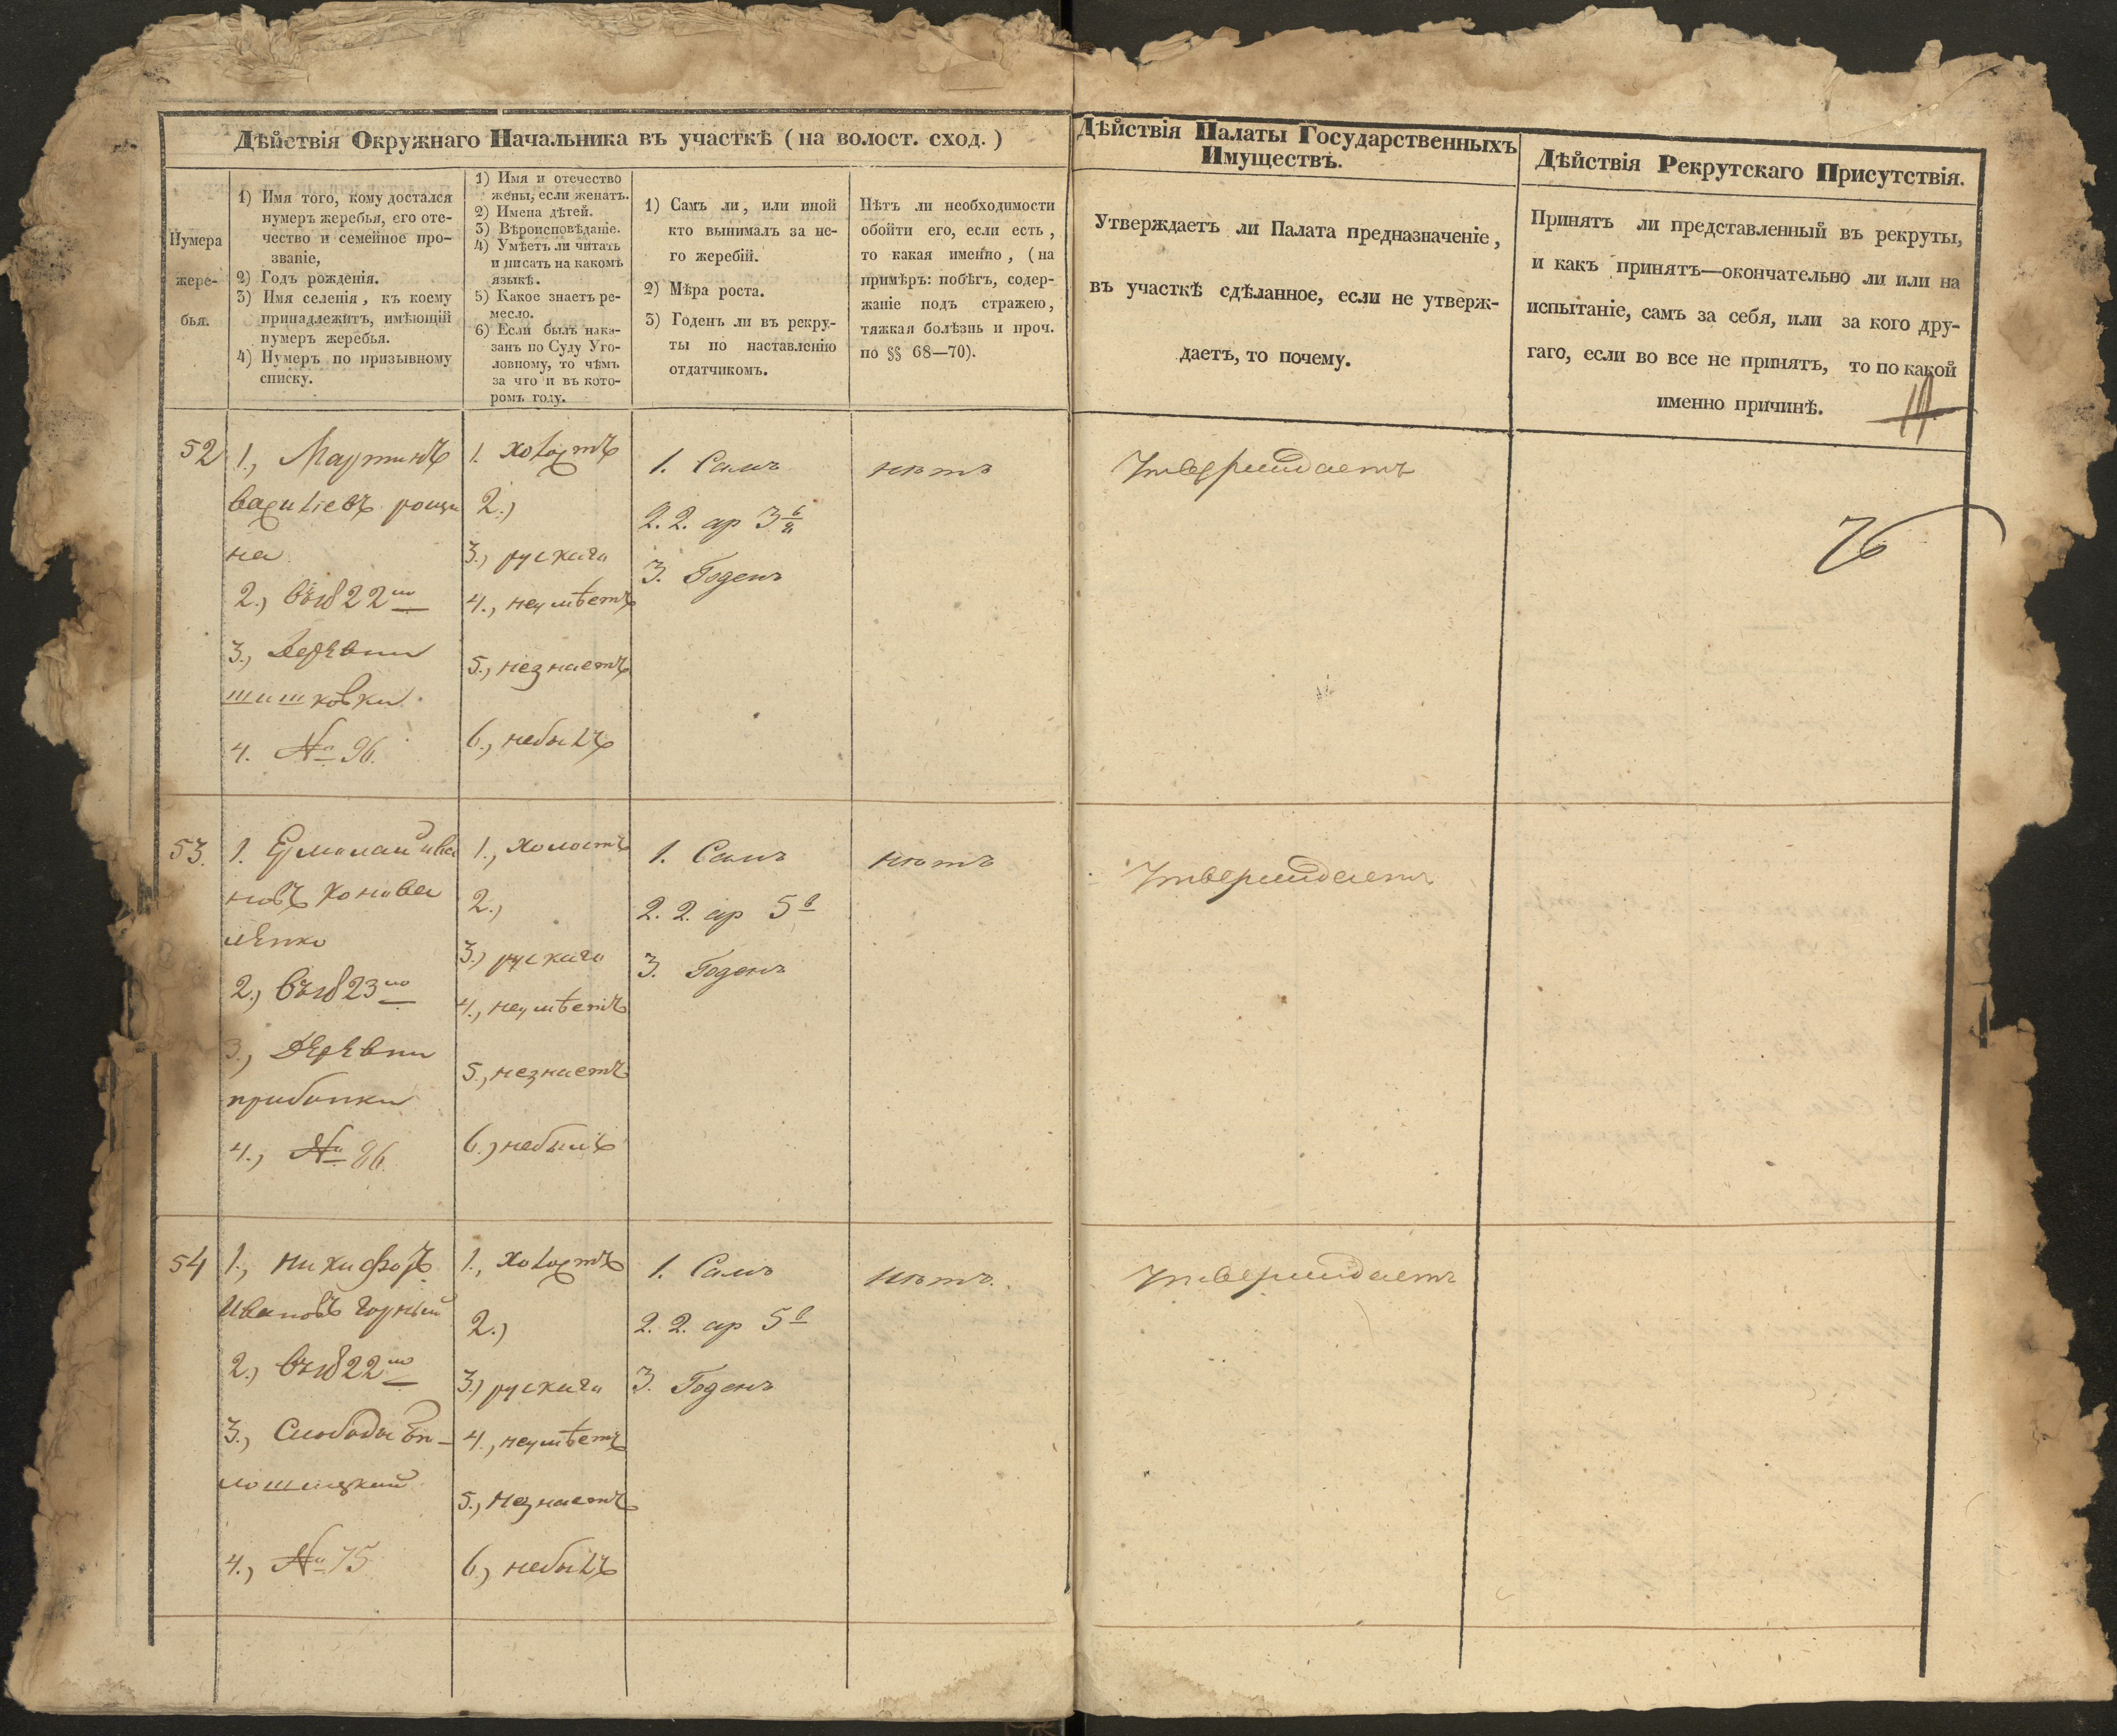 Дѣйствія Окружнаго Начальника въ участкѣ (на волост. сход.)
Нумера
жере-
бья.
1) Имя того, кому достался
нумеръ жеребья, его оте-
чество и семейное про-
званіе,
2) Годъ рожденія.
3) Имя селенія, къ коему
принадлежитъ, имѣющій
нумеръ жеребья.
4) Нумеръ по призывному
списку.
1) Имя и отечество
жены, если женатъ.
2) Имена дѣтей.
3) Вѣроисповѣданіе.
4) Умѣетъ ли читать
и писать на какомъ
языкѣ.
5) Какое знаетъ ре-
месло.
6) Если былъ нака-
занъ по Суду Уго-
ловному, то чѣмъ
за что и въ кото-
ромъ году.
1) Самъ ли, или иной
кто вынималъ за не-
го жеребій.
2) Мѣра роста.
3) Годенъ ли въ рекру-
ты по наставленію
отдатчикомъ.
Нѣтъ ли необходимости
обойти его, если есть,
то какая именно, (на
примѣръ: побѣгъ, содер-
жаніе подъ стражею,
тяжкая болѣзнь и проч.
по §§ 68—70).
52
1., Мартинъ
василіевъ рощи
на
2., въ 1822мо
3., Деревни
шишковки
4. № 96.
1. холостъ
2.)
3., рускаго
4., неумѣетъ
5., незнаетъ
6., небылъ
1. Самъ
2. 2. ар 3 в/8
3. Годенъ
нѣтъ
53.
1. Ермолай ива
новъ Конова
ленко
2., въ 1823мо
3., Деревни
прибопки
4., № 86.
1., холостъ
2.,
3.) рускаго
4., неумѣетъ
5., незнаетъ
6.) небылъ
1. Самъ
2. 2. ар 5в
3. Годенъ
нѣтъ
54
1., никифоръ
Ивановъ Горный
2., въ 1822мо
3., Слободы
4., № 75
1., холостъ
2.)
3.) рускаго
4., неумѣетъ
5., незнаетъ
6.) небылъ
1. Самъ
2. 2. ар 5в
3. Годенъ
нѣтъ.
Дѣйствія Палаты Государственныхъ
Имуществъ.
Утверждаетъ ли Палата предназначеніе,
въ участкѣ сдѣланное, если не утверж-
даетъ, то почему.
Утверждаетъ
Утверждаетъ
Утверждаетъ
Дѣйствія Рекрутскаго Присутствія.
Принятъ ли представленный въ рекруты,
и какъ принятъ—окончательно ли или на
испытаніе, самъ за себя, или за кого дру-
гаго, если во все не принятъ, то по какой
именно причинѣ.
76